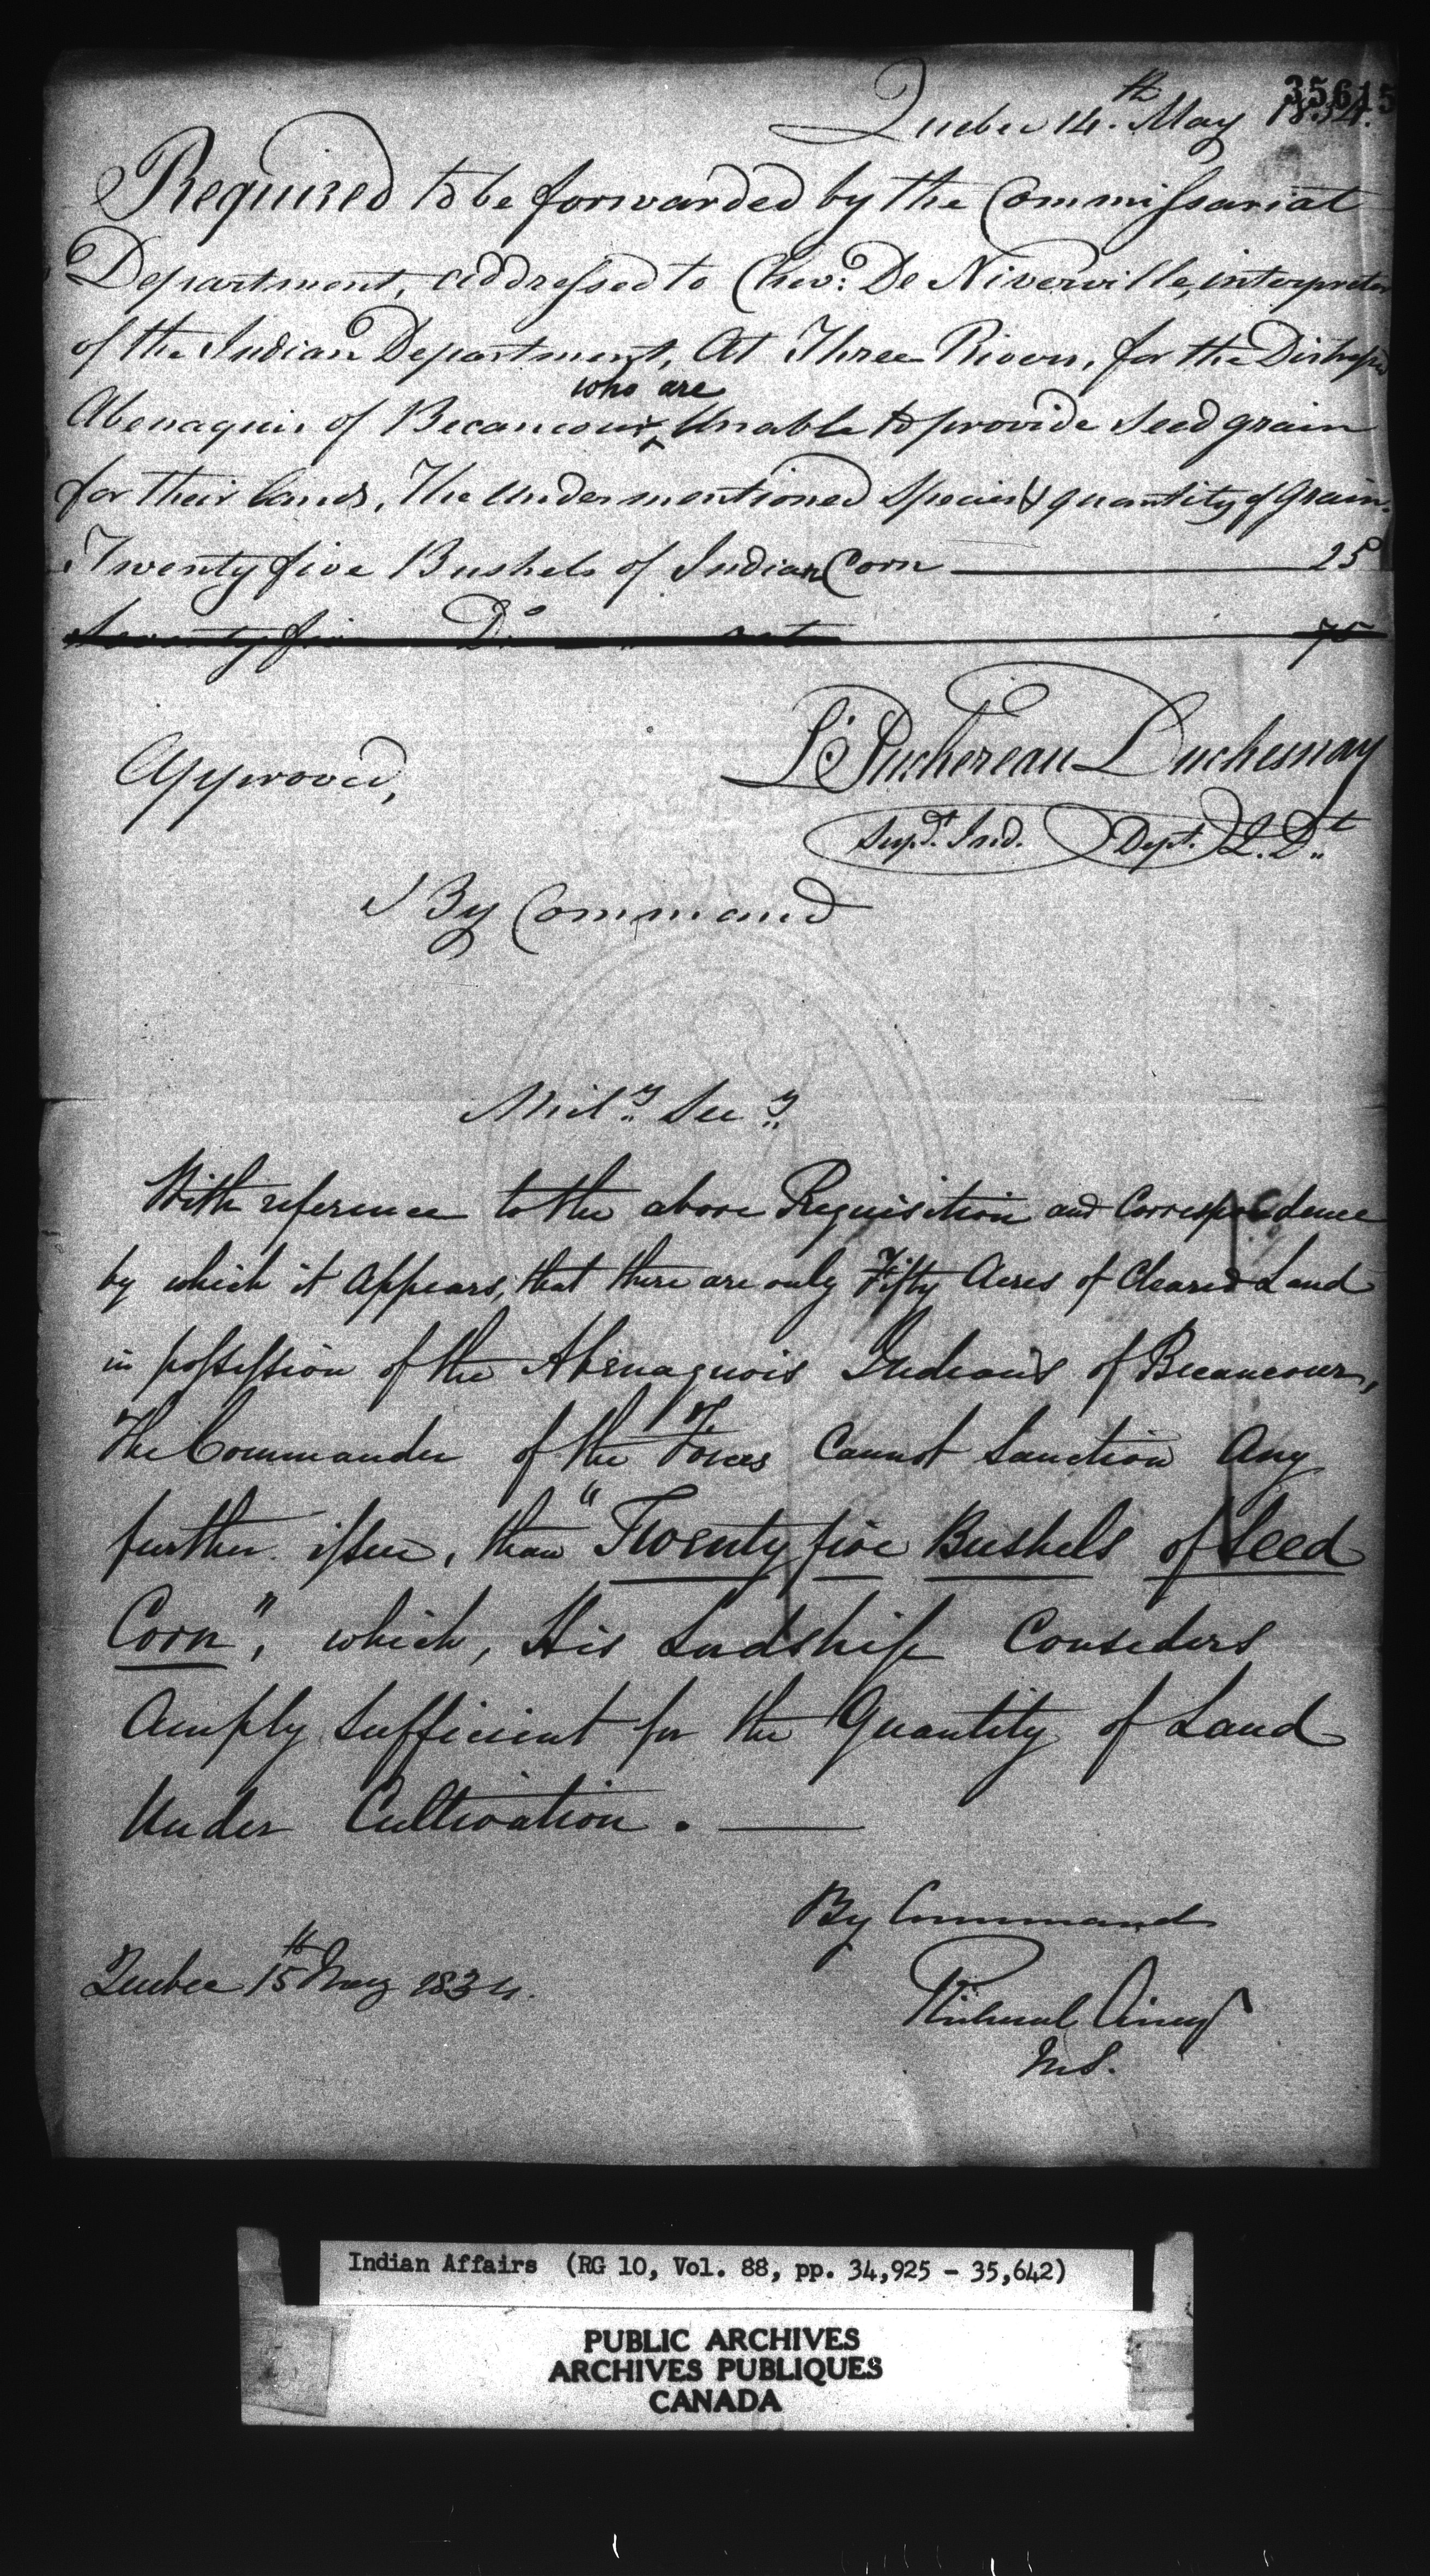 35615
Quebec 14th May 1834.
Required to be forwarded by the Commissariat
Department, addressed to Chev: De Niverville, interpreter
of the Indian Department, At Three Rivers, for the Distressed
who are
Abenaquis of Becancour Unable to provide Seed grain
for their lands, The Undermentioned Species & quantity of Grain.
Twenty five Bushels of Indian Corn 25
Seventy five Do oats 75
Approved,
L. Juchereau Duchesnay
Supdt. Ind. Dept. L. Dt
By Command
Mily Secy
With reference to the above Requisition and Correspondence
by which it Appears, that there are only Fifty Acres of Cleared Land
in possession of the Abenaquois Indians of Becancour,
The Commander of the Forces Cannot Sanction Any
further issue, than "Twenty five Bushels of Seed
Corn", which, His Lordship Considers
Amply Sufficient for the Quantity of Land
Under Cultivation.
By Command
Quebec 15th May 1834.
Richard Airey
M.S.
Indian Affairs (RG 10, Vol. 88, pp. 34,925 - 35,642)
PUBLIC ARCHIVES
ARCHIVES PUBLIQUES
CANADA